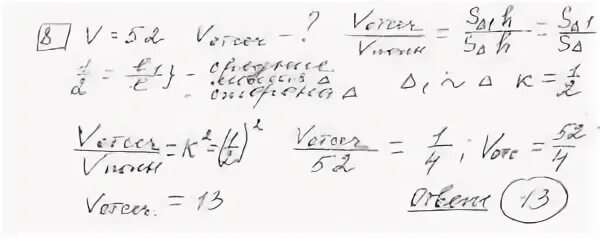 8 V = 52 Vотсеч - ? Vотсеч/Vполн = S△1 h/S△ h = S△1/S△
1/2 = ℓ1/ℓ } - средние линия △ сторона △ △1 ~ △ K = 1/2
Vотсеч/Vполн = K² = (1/2)² Vотсеч/52 = 1/4 ; Vотс = 52/4
Vотсеч. = 13 Ответ 13